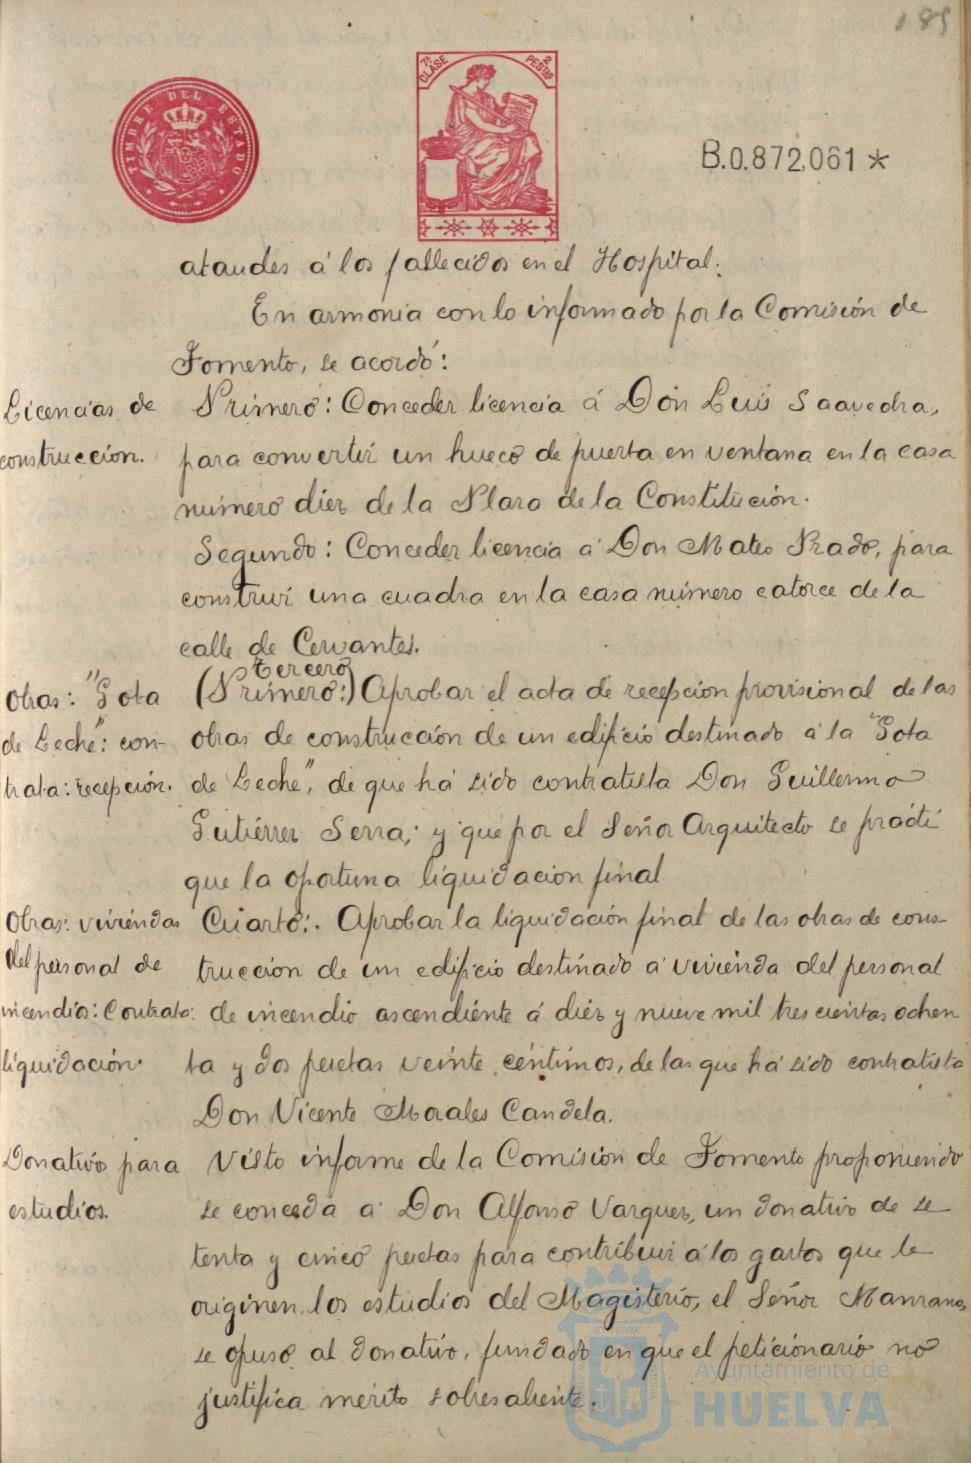 185
TIMBRE DEL ESTADO
7ª CLASE
2 PESTAS
B.0.872,061 *
ataudes á los fallecidos en el Hospital.
En armonía con lo informado por la Comisión de
Fomento, se acordó:
Licencias de
construcción.
Primero: Conceder licencia á Don Luis Saavedra,
para convertir un hueco de puerta en ventana en la casa
número diez de la Plaza de la Constitución.
Segundo: Conceder licencia á Don Mateo Prado, para
construir una cuadra en la casa número catorce de la
calle de Cervantes.
Obras: "Gota
de Leche": con-
trata: recepción.
Tercero
(Primero:) Aprobar el acta de recepción provisional de las
obras de construcción de un edificio destinado á la "Gota
de Leche", de que há sido contratista Don Guillermo
Gutiérrez Serra; y que por el Señor Arquitecto se practi
que la oportuna liquidación final
Obras: viviendas
del personal de
incendios: Contrata:
liquidación.
Cuarto:. Aprobar la liquidación final de las obras de cons-
trucción de un edificio destinado á vivienda del personal
de incendio ascendiente á diez y nueve mil trescientas ochen
ta y dos pesetas veinte céntimos, de las que há sido contratista
Don Vicente Morales Candela.
Donativo para
estudios.
Visto informe de la Comisión de Fomento proponiendo
se conceda á Don Alfonso Vargues, un donativo de se
tenta y cinco pesetas para contribuir á los gastos que le
originen los estudios del Magisterio, el Señor Manzano,
se opuso al donativo, fundado en que el peticionario no
justifica mérito sobresaliente.
Ayuntamiento de
HUELVA